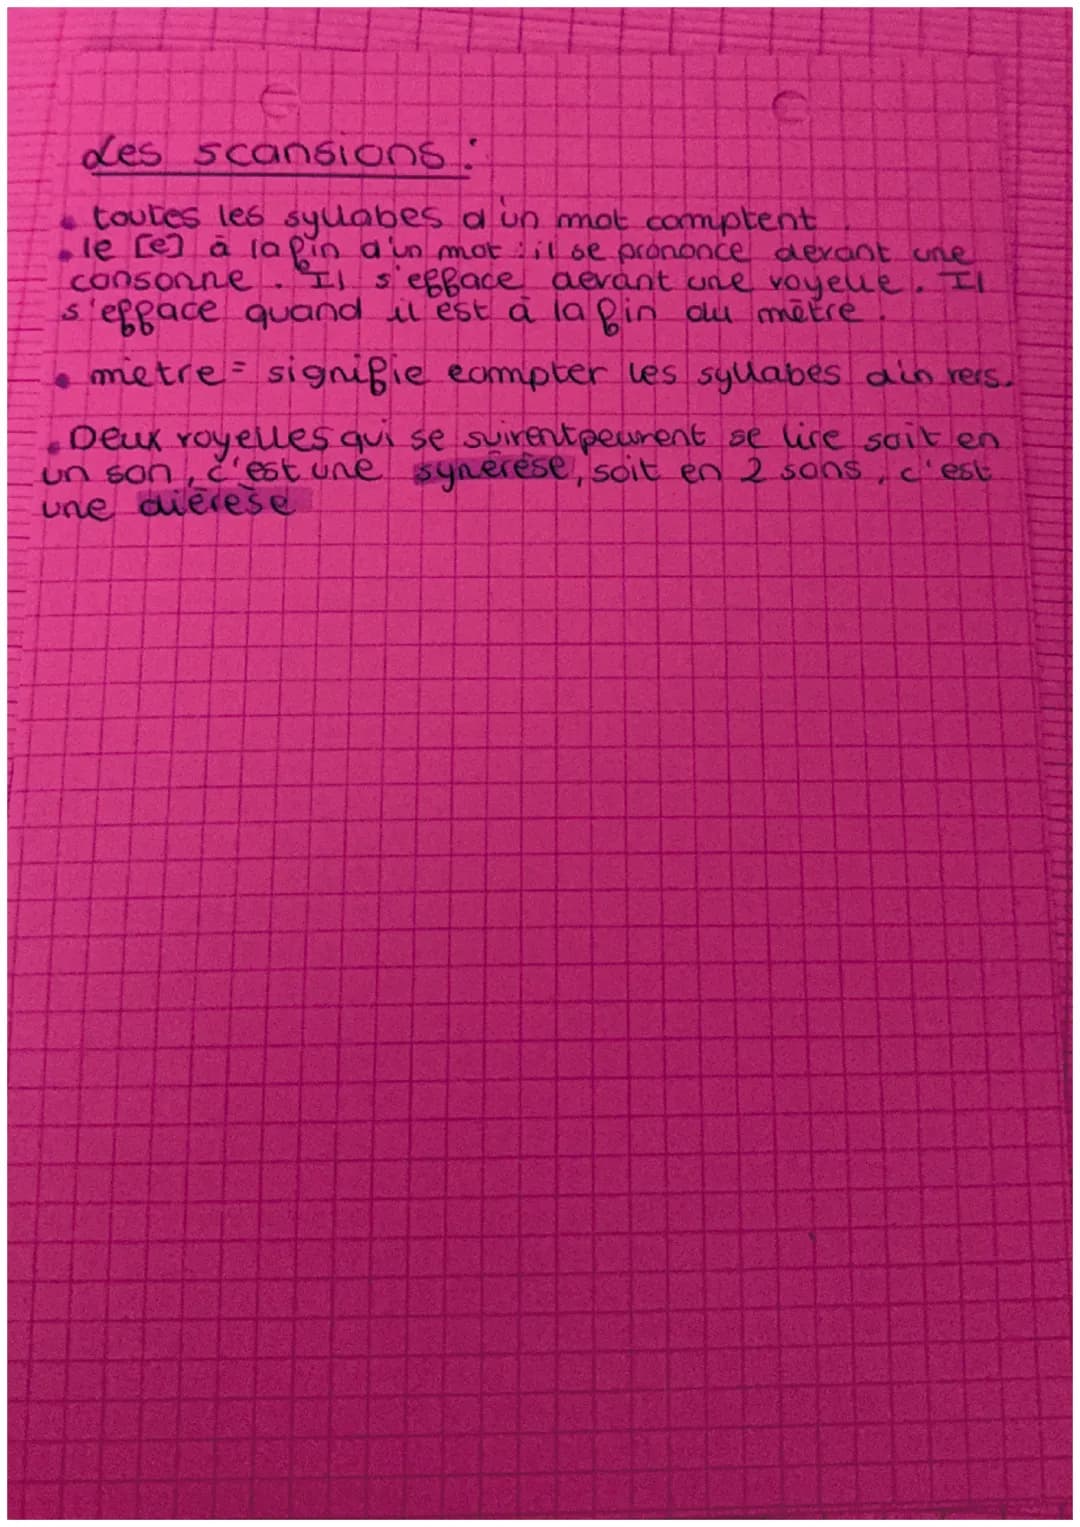 Les scansions :
• toutes les syllabes d'un mot comptent
• le [e] à la fin d'un mot : il se prononce devant une
consonne. Il s'efface devant une voyelle. Il
s'efface quand il est à la fin du mètre.
• mètre = signifie compter les syllabes d'un vers.
• Deux voyelles qui se suivent peuvent se lire soit en
un son, c'est une synérèse, soit en 2 sons, c'est
une diérèse